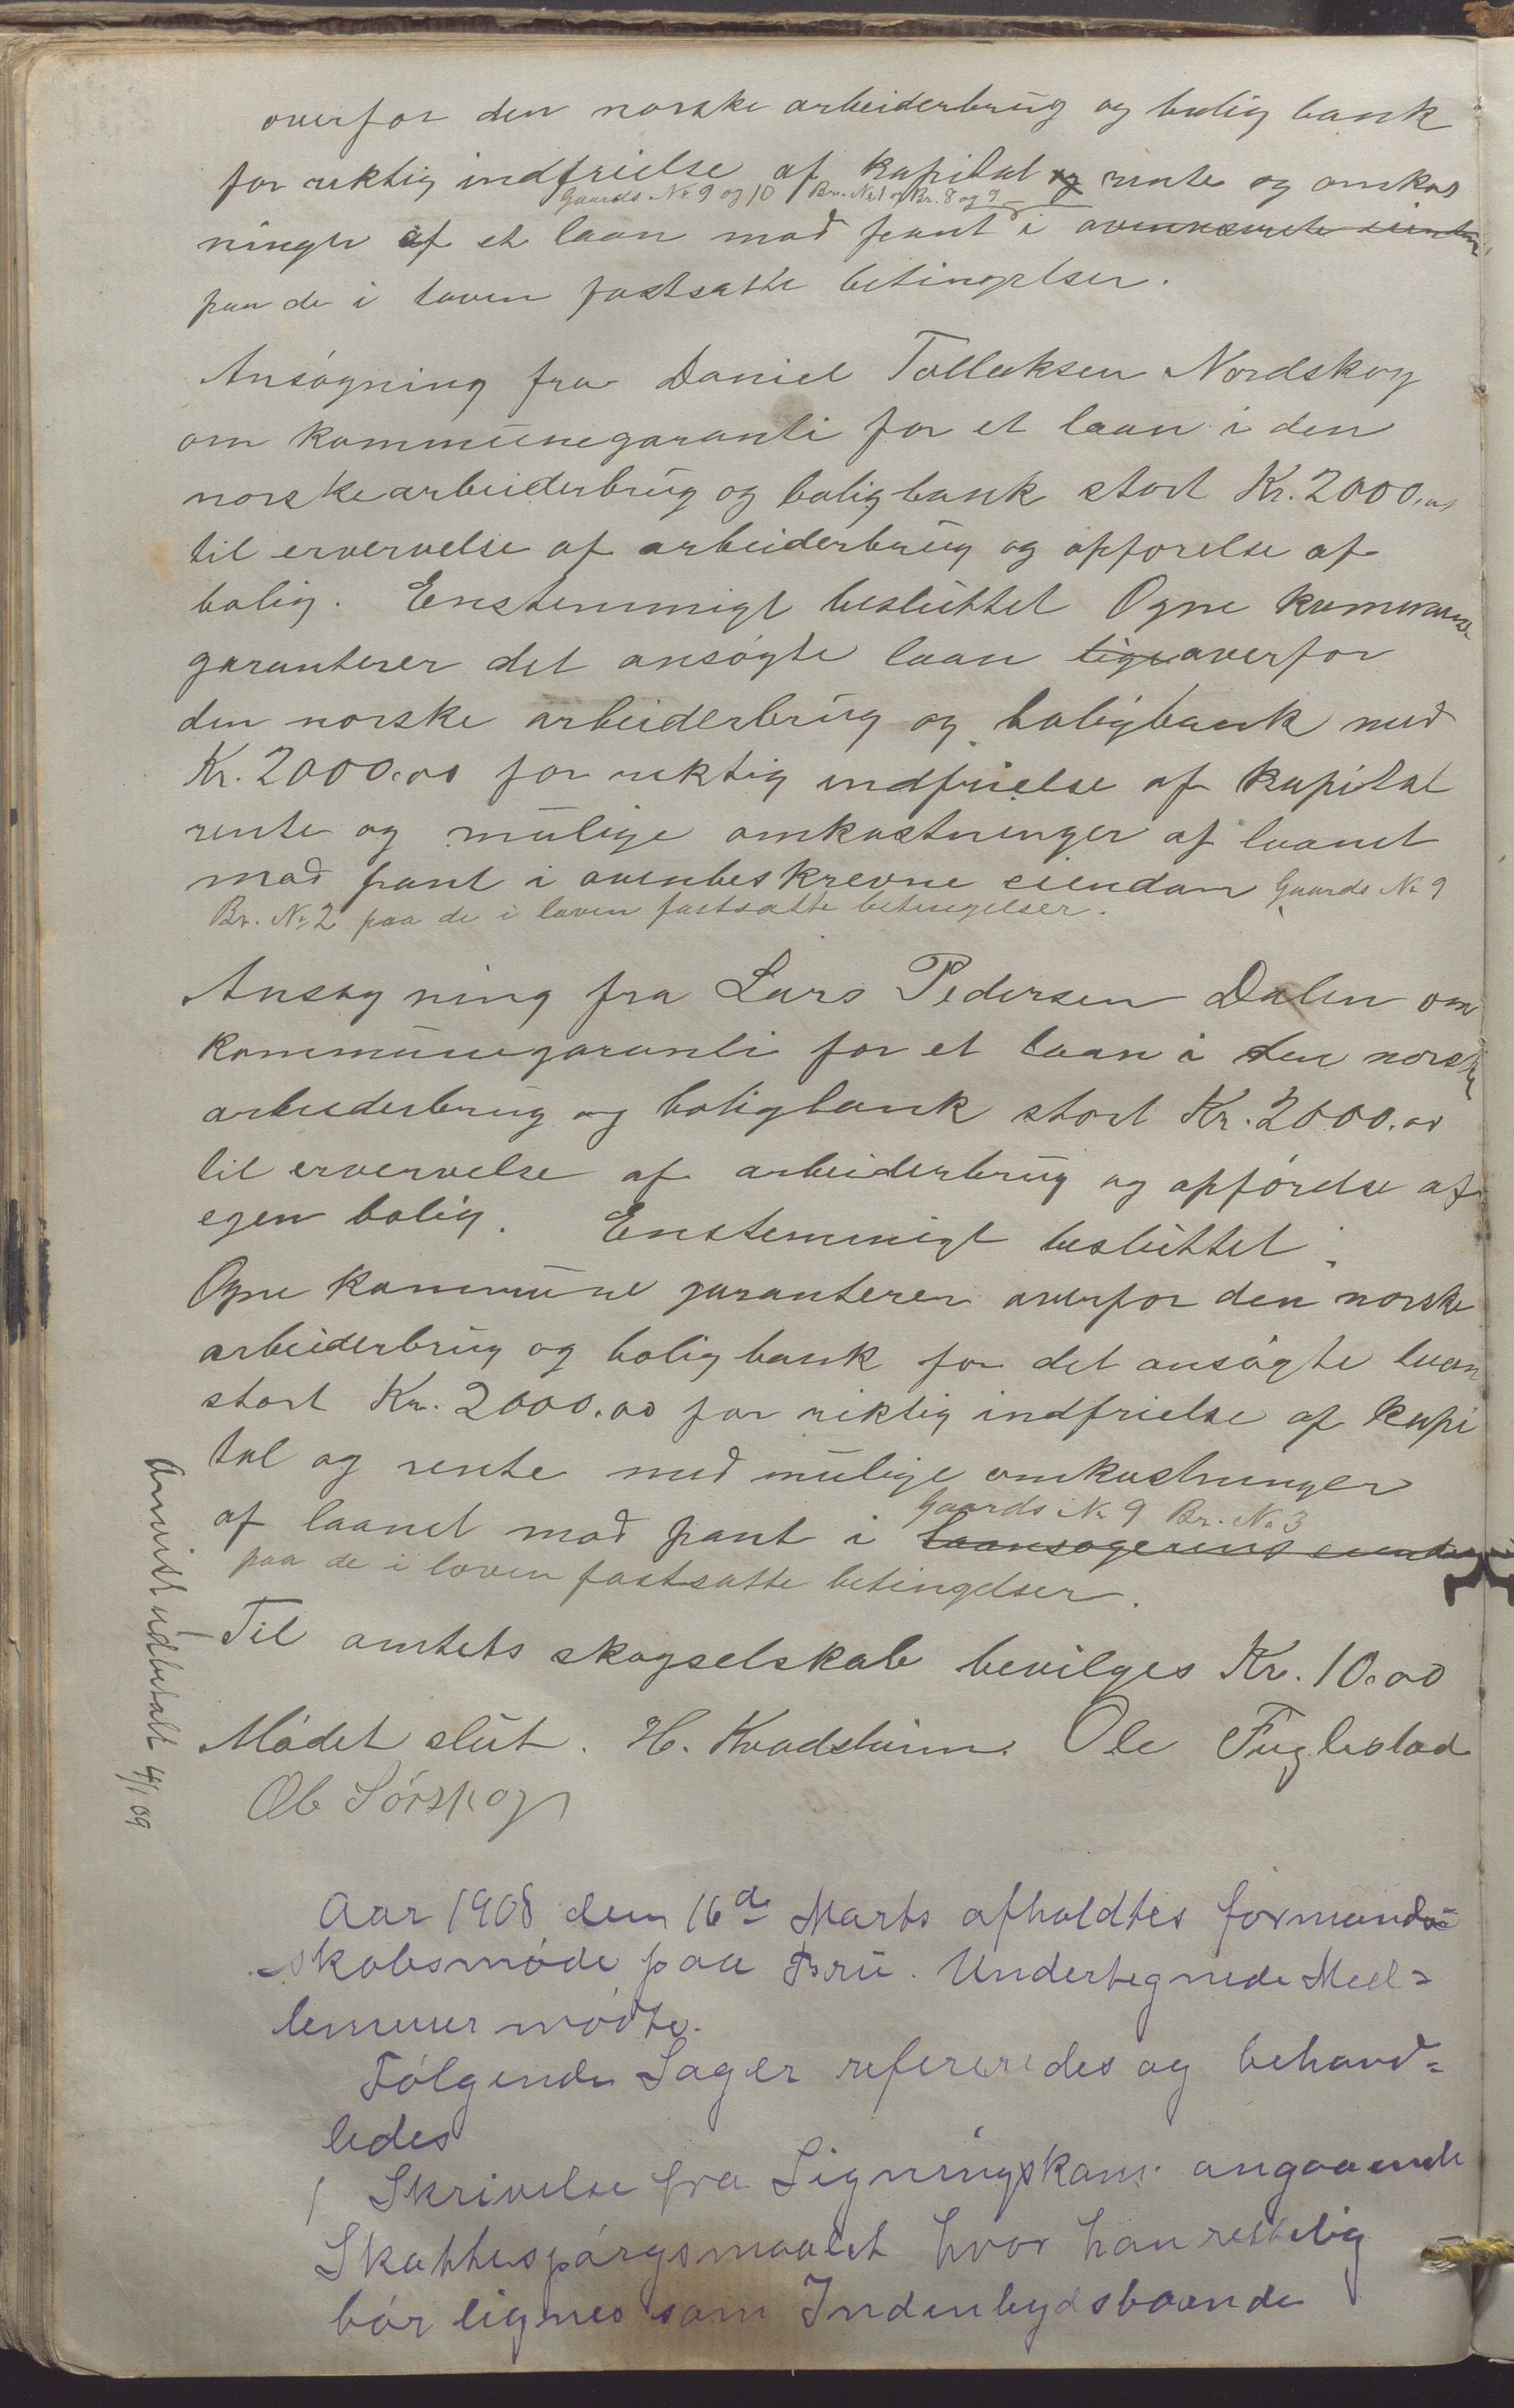 overfor den norske arbeiderbrug og bolig bank
for riktig indfrielse af kapital og rente og omkost
Gaards No 9 og 10 Br. No 1 og Br. 8 og 9
ninger af et laan mod pant i
paa de i loven fastsatte betingelser.
Ansøgning fra Daniel Tollaksen Nordskog
om kommunegaranti for et laan i den
norske arbeiderbrug og boligbank stort Kr. 2000.00
til ervervelse af arbeiderbrug og opførelse af
bolig. Enstemmigt besluttet Ogne kommune
garanterer det ansøgte laan lige overfor
den norske arbeiderbrug og boligbank med
Kr. 2000.00 for riktig indfrielse af kapital
rente og mulige omkostninger af laanet
mod pant i ovenbeskrevne eiendom Gaards No 9
Br. No 2 paa de i loven fastsatte betingelser.
Ansøgning fra Lars Pedersen Dalen om
kommunegaranti for et laan i den norske
arbeiderbrug og boligbank stort Kr. 2000.00
til ervervelse af arbeiderbrug og opførelse af
egen bolig. Enstemmigt besluttet.
Ogne kommune garanterer overfor den norske
arbeiderbrug og bolig bank for det ansøgte laan
stort Kr. 2000.00 for riktig indfrielse af kapi
tal og rente med mulige omkostninger
Gaards No 9 Br. No 3
af laanet mod pant i laansøgerens eiendom
paa de i loven fastsatte betingelser.
Til amtets skogselskab bevilges Kr. 10.00
Mødet slut. H. Kvadsheim. Ole Fuglestad
Ob Sørskog
Anvist udbetalt 4/1 09
Aar 1908 den 16de Marts afholdtes formand
skabsmøde paa Bru. Undertegnede Med=
lemmer mødte.
Følgende Sager refereredes og behand=
ledes
1 Skrivelse fra Ligningskom. angaaende
Skattespørgsmaalet hvor han rettelig
bør lignes som Indenbygdsboende